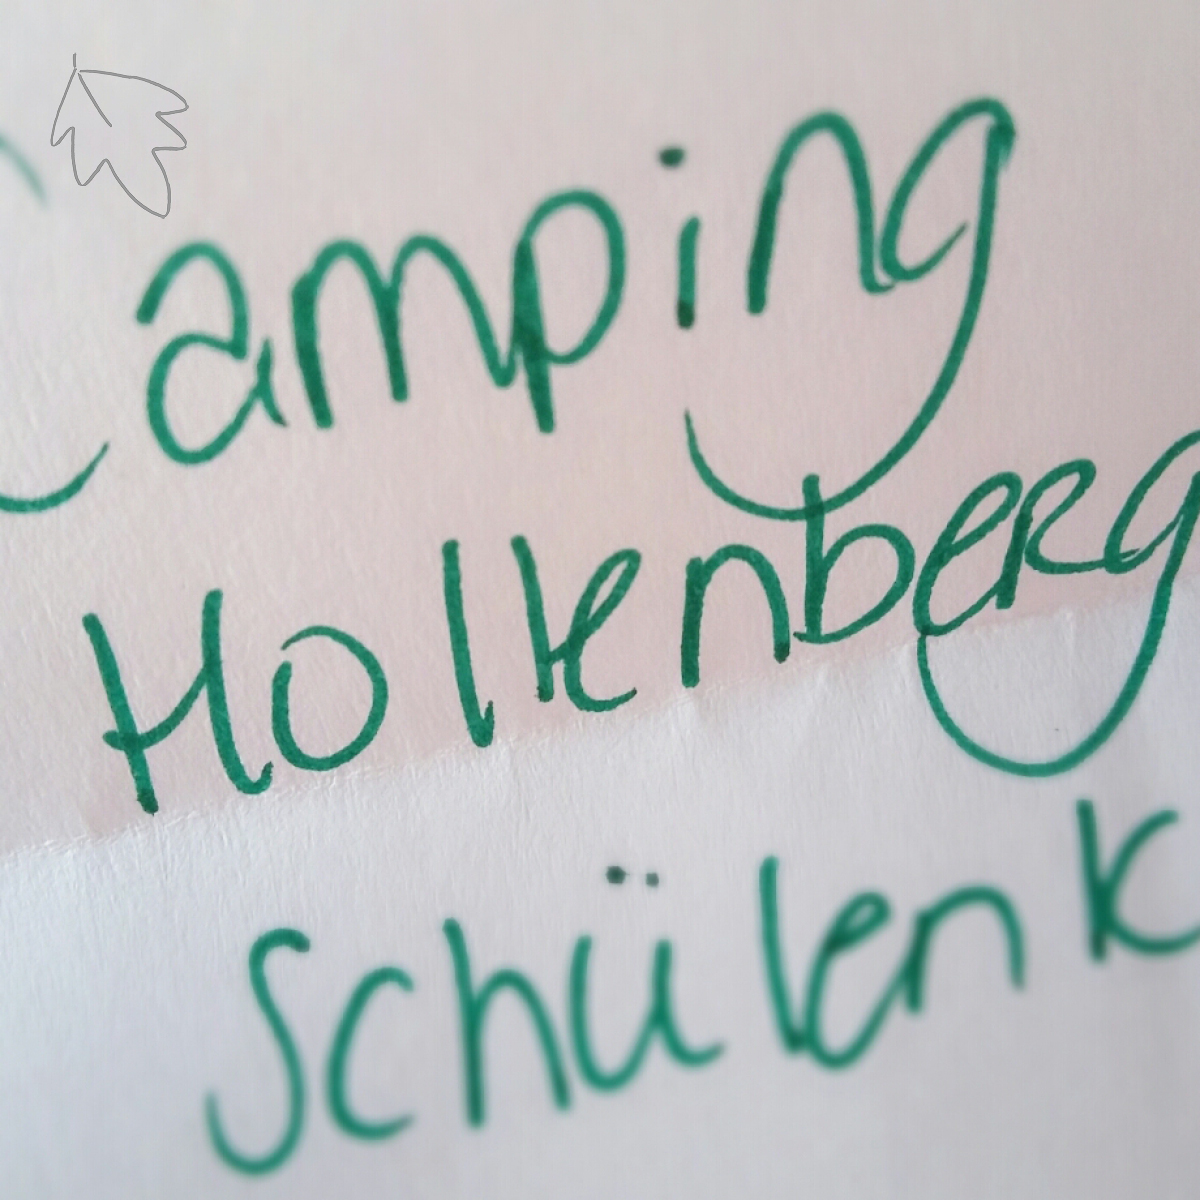 Camping
Hollenberg
Schülenk